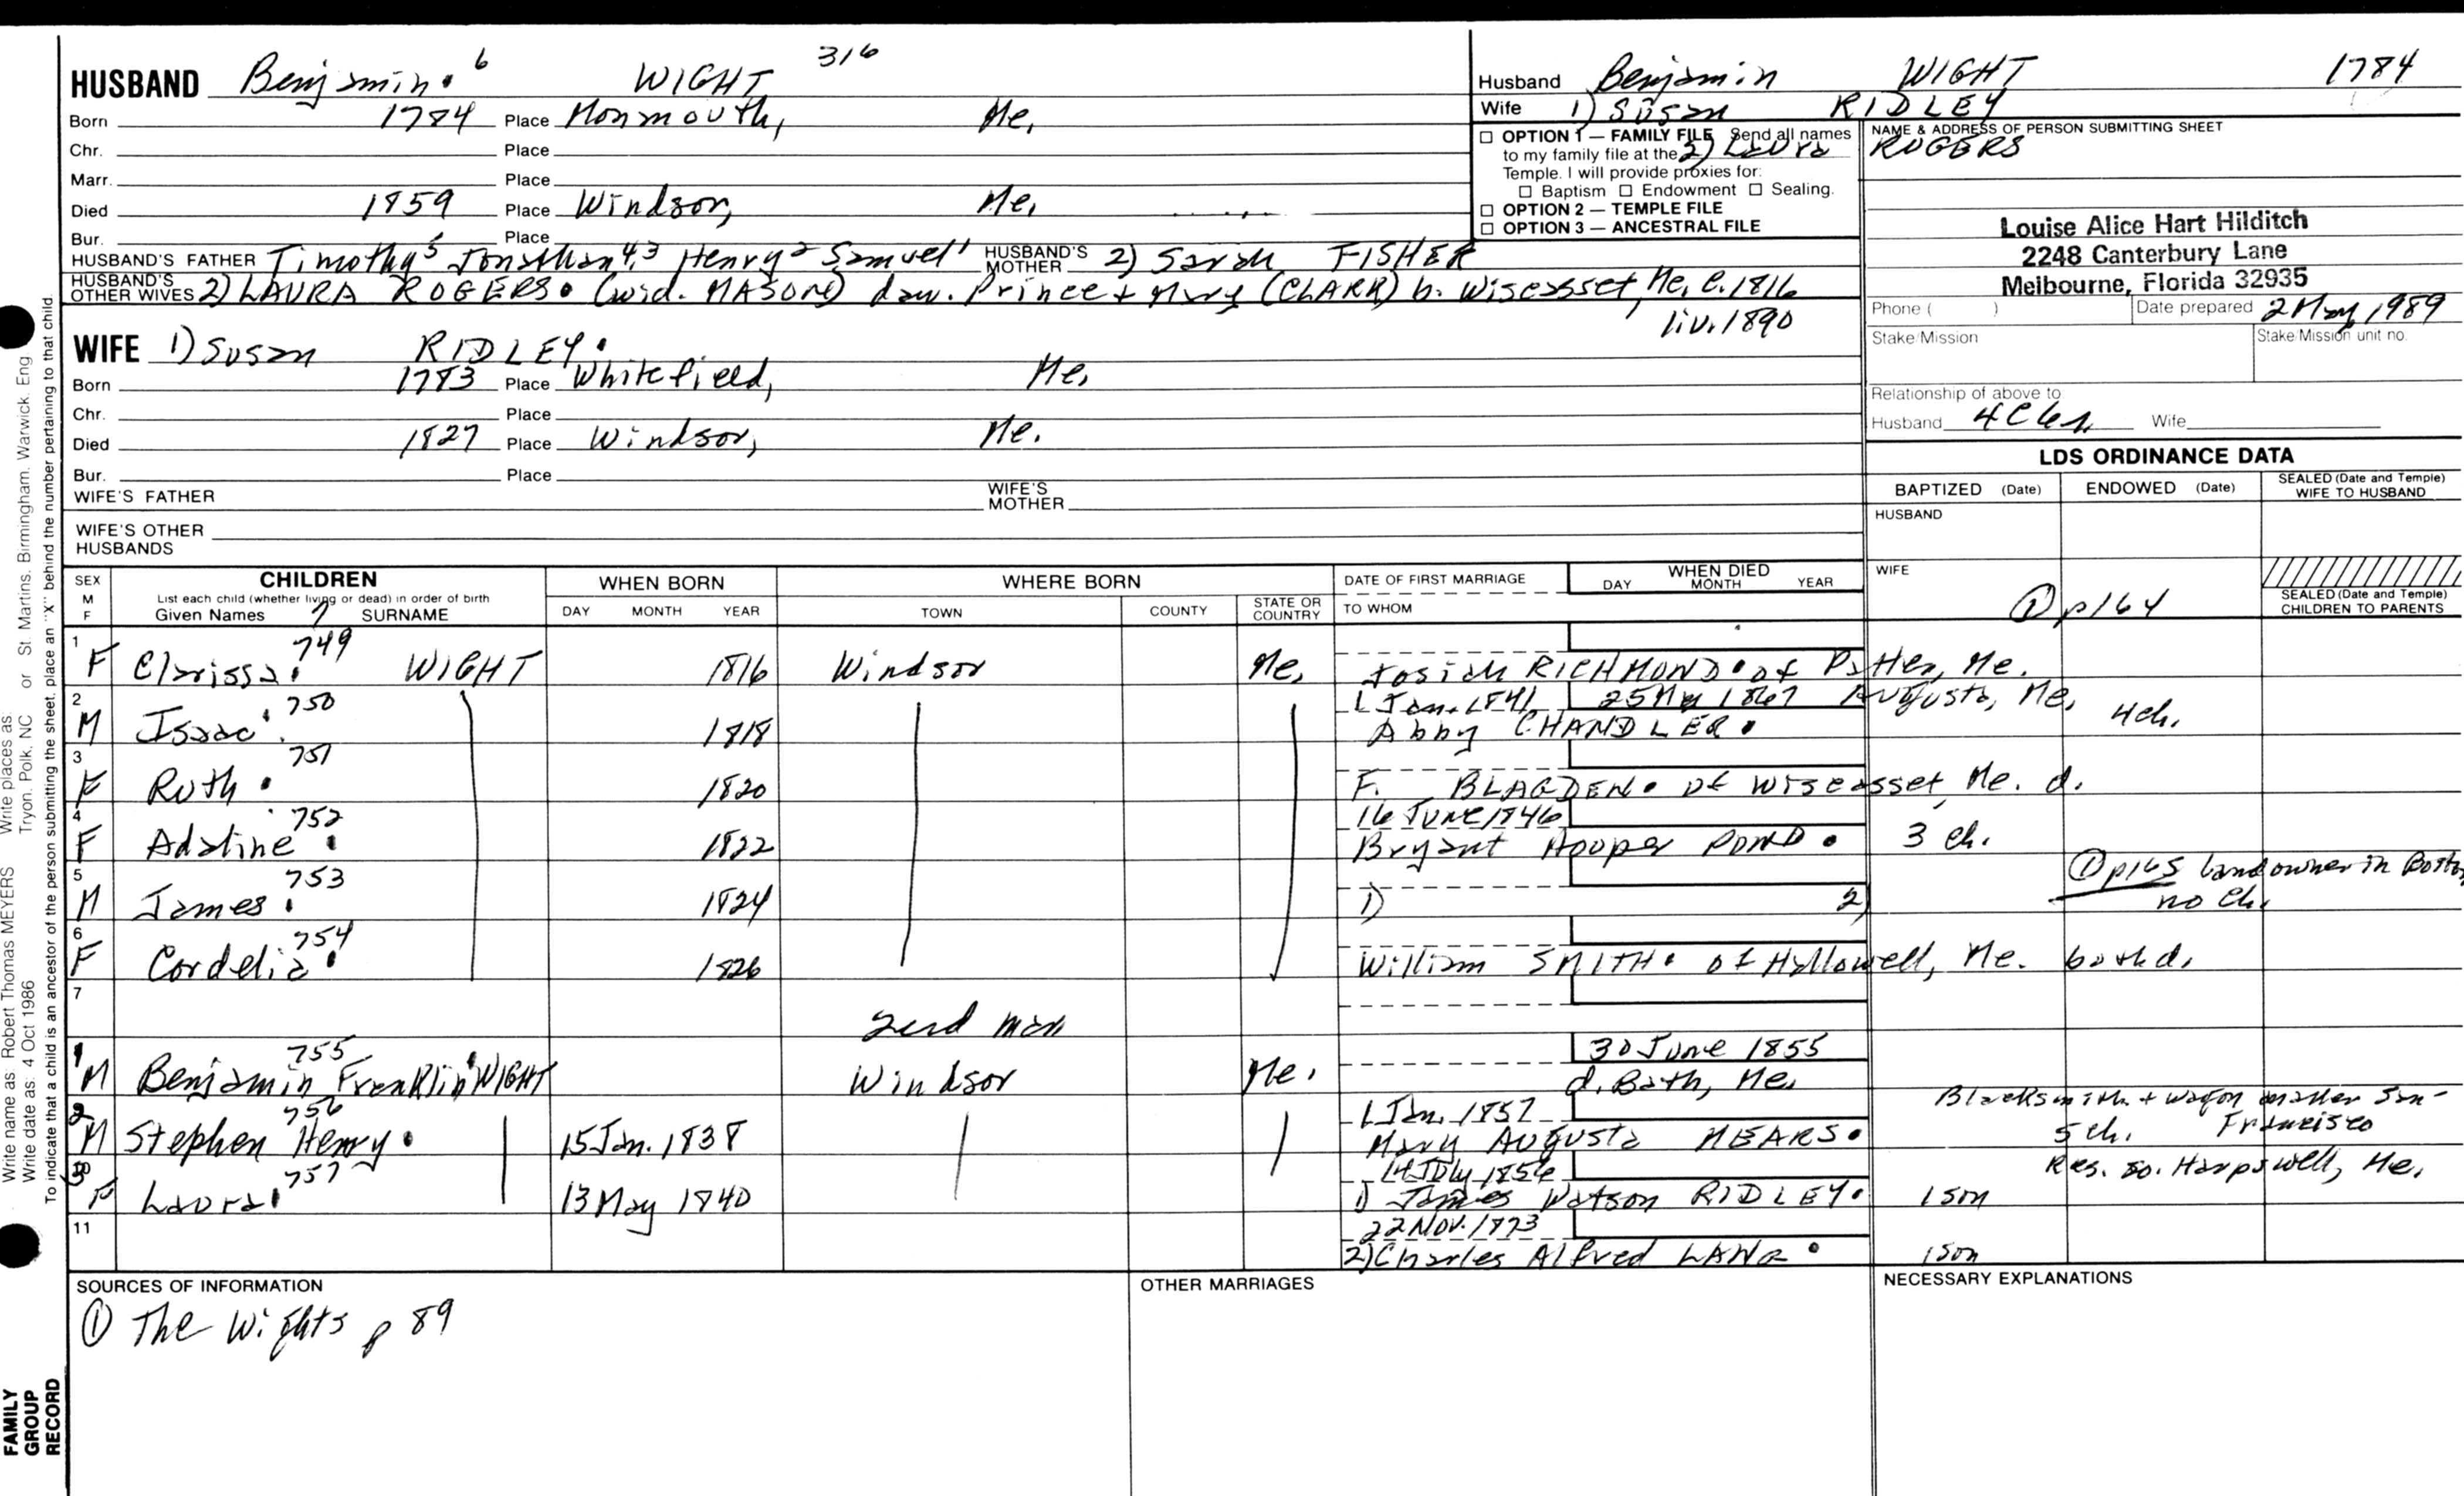 HUSBAND Benjamin 6 WIGHT 316
Born 1784 Place Monmouth, Me.
Chr. Place
Marr. Place
Died 1859 Place Windsor, Me.
Bur. Place
HUSBAND'S FATHER Timothy5 Jonathan4,3 Henry2 Samuel1 HUSBAND'S MOTHER 2) Sarah FISHER
HUSBAND'S OTHER WIVES 2) LAURA ROGERS. (wid. MASON) dau. Prince + Mary (CLARK) b. Wiscassset, Me, c. 1816
liv. 1890
WIFE 1) Susan RIDLEY.
Born 1783 Place Whitefield, Me.
Chr. Place
Died 1827 Place Windsor, Me.
Bur. Place
WIFE'S FATHER WIFE'S MOTHER
WIFE'S OTHER HUSBANDS
Husband Benjamin WIGHT 1784
Wife 1) Susan RIDLEY
OPTION 1 — FAMILY FILE Send all names
to my family file at the 2) Laura
Temple. I will provide proxies for:
Baptism Endowment Sealing.
OPTION 2 — TEMPLE FILE
OPTION 3 — ANCESTRAL FILE
NAME & ADDRESS OF PERSON SUBMITTING SHEET
ROGERS
Louise Alice Hart Hilditch
2248 Canterbury Lane
Melbourne, Florida 32935
Phone ( ) Date prepared 2 May 1989
Stake/Mission Stake/Mission unit no.
Relationship of above to
Husband 4C6r Wife
LDS ORDINANCE DATA
BAPTIZED (Date) ENDOWED (Date) SEALED (Date and Temple) WIFE TO HUSBAND
HUSBAND
WIFE
① p164
SEALED (Date and Temple) CHILDREN TO PARENTS
SEX M F
CHILDREN
List each child (whether living or dead) in order of birth
Given Names 7 SURNAME
WHEN BORN
DAY MONTH YEAR
WHERE BORN
TOWN COUNTY STATE OR COUNTRY
DATE OF FIRST MARRIAGE
TO WHOM
WHEN DIED
DAY MONTH YEAR
1 F Clarissa. 749 WIGHT 1816 Windsor Me. Josiah RICHMOND. of Patten, Me.
1 Jan. 1841 25 May 1867 Augusta, Me.
2 M Isaac. 750 1818 Abby CHANDLER. 4ch.
3 F Ruth. 751 1820 F. BLAGDEN. of Wiscasset Me. d.
16 June 1846
4 F Adaline. 752 1822 Bryant Hooper POND. 3 ch.
5 M James. 753 1824 1) 2) ① p165 landowner in Bosto
no ch.
6 F Cordelia. 754 1826 William SMITH. of Hallowell, Me. both d.
7
2nd mar
30 June 1855
1 M Benjamin Franklin WIGHT 755 Windsor Me. d. Bath, Me.
1 Jan. 1857 Blacksmith + wagon maker San-
2 M Stephen Henry. 756 15 Jan. 1838 Mary Augusta MEARS. 5 ch. Francisco
14 July 1856 Res. So. Harpswell, Me.
3 F Laura. 757 13 May 1840 1) James Watson RIDLEY. 1 son
22 Nov. 1873
11 2) Charles Alfred LANE. 1 son
SOURCES OF INFORMATION
① The Wights p 89
OTHER MARRIAGES
NECESSARY EXPLANATIONS
Write name as: Robert Thomas MEYERS Write places as: Tryon, Polk, NC or St. Martins, Birmingham, Warwick, Eng
Write date as: 4 Oct 1986
To indicate that a child is an ancestor of the person submitting the sheet, place an "X" behind the number pertaining to that child.
FAMILY
GROUP
RECORD